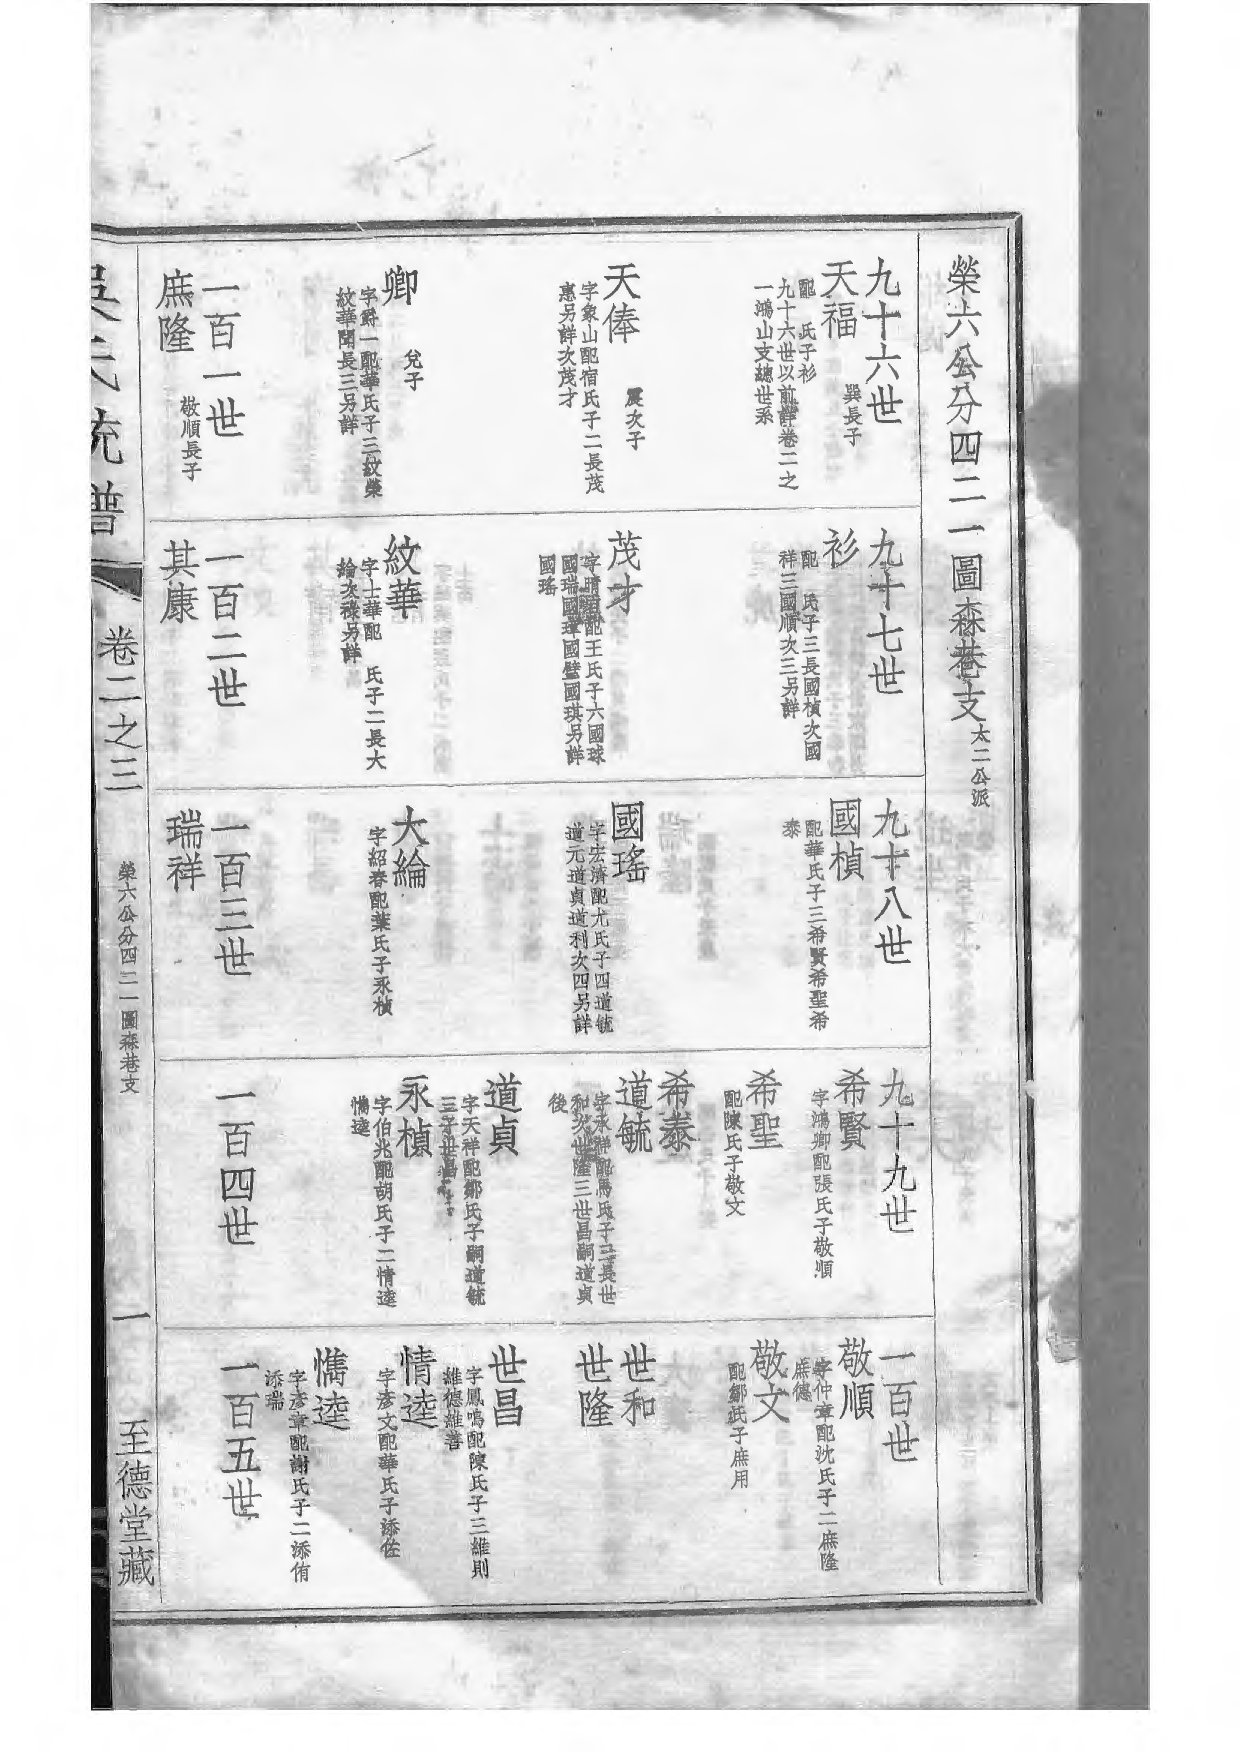 榮六公分四二一圖森巷支
大二公派
九十六世
天福
巽長子
配 氏子衫
九十六世以前詳卷二之
一鴻山支總世系
天俸
震次子
字象山配宿氏子二長茂
惠另詳次茂才
卿
兌子
字爵一配華氏子三紋榮
紋華聞長三另詳
一百一世
庶隆
敬順長子
九十七世
衫
配 氏子三長國楨次國
祥三國順次三另詳
茂才
配王氏子六國球
國瑞國璋國璧國琪另詳
國瑤
紋華
字士華配 氏子二長大
綸次祿另詳
一百二世
其康
九十八世
國楨
配華氏子三希賢希聖希
泰
國瑤
字宏濟配尤氏子四道毓
道元道貞道利次四另詳
大綸
字紹春配葉氏子永楨
一百三世
瑞祥
九十九世
希賢
字鴻卿配張氏子敬順
希聖
配陳氏子敬文
希泰
道毓
字永祥配馬氏子三長世
和次世隆三世昌嗣道貞
後
道貞
字天祥配鄒氏子嗣道毓
三子世昌
永楨
字伯兆配胡氏子二情逵
懏逵
一百四世
一百世
敬順
字仲章配沈氏子二庶隆
庶德
敬文
配鄒氏子庶用
世和
世隆
世昌
字鳳鳴配陳氏子三維則
維德維善
情逵
字彥文配華氏子添佐
懏逵
字彥章配謝氏子二添侑
添瑞
一百五世
吳氏統譜
卷二之三
榮六公分四二一圖森巷支
一
至德堂藏